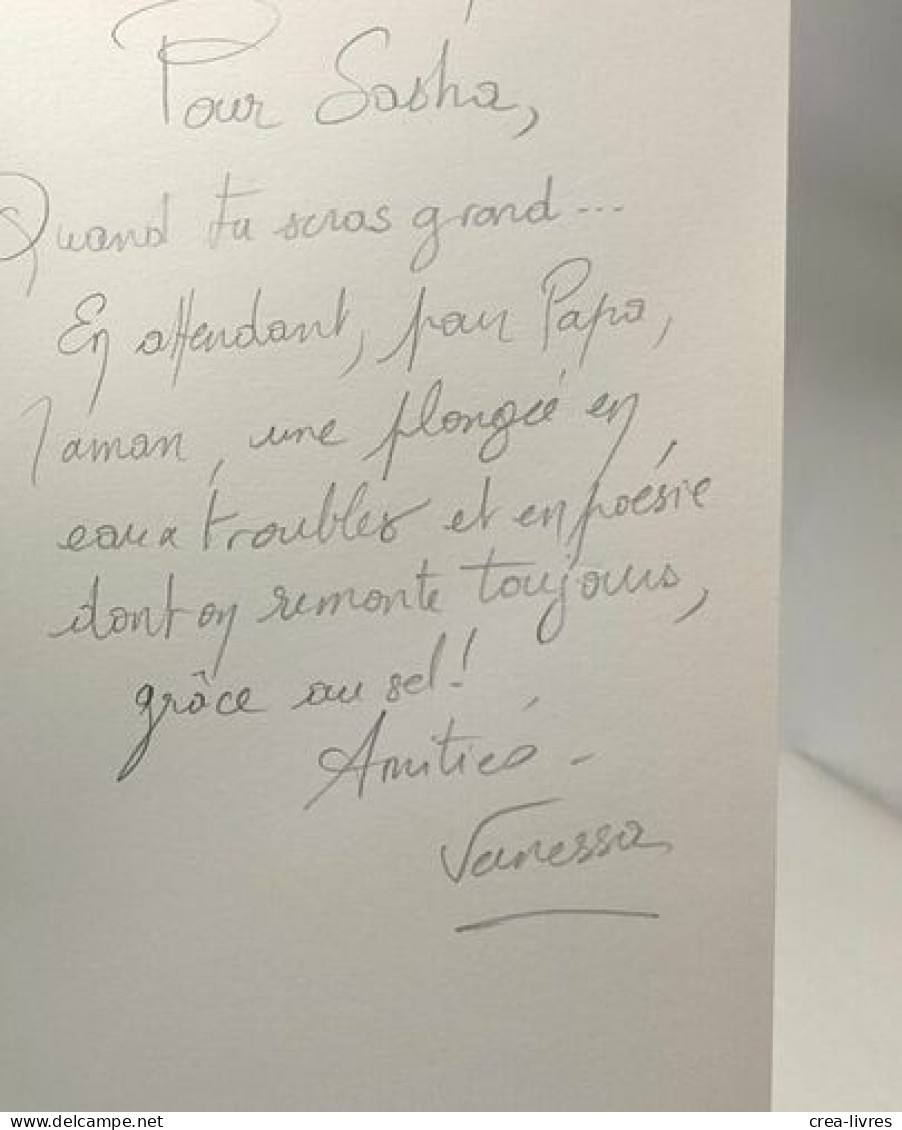 Pour Sasha,
Quand tu seras grand...
En attendant, pour Papa,
Maman, une plongée en
eaux troubles et en poésie
dont on remonte toujours,
grâce au sel !
Amitiés -
Vanessa
crea-livres